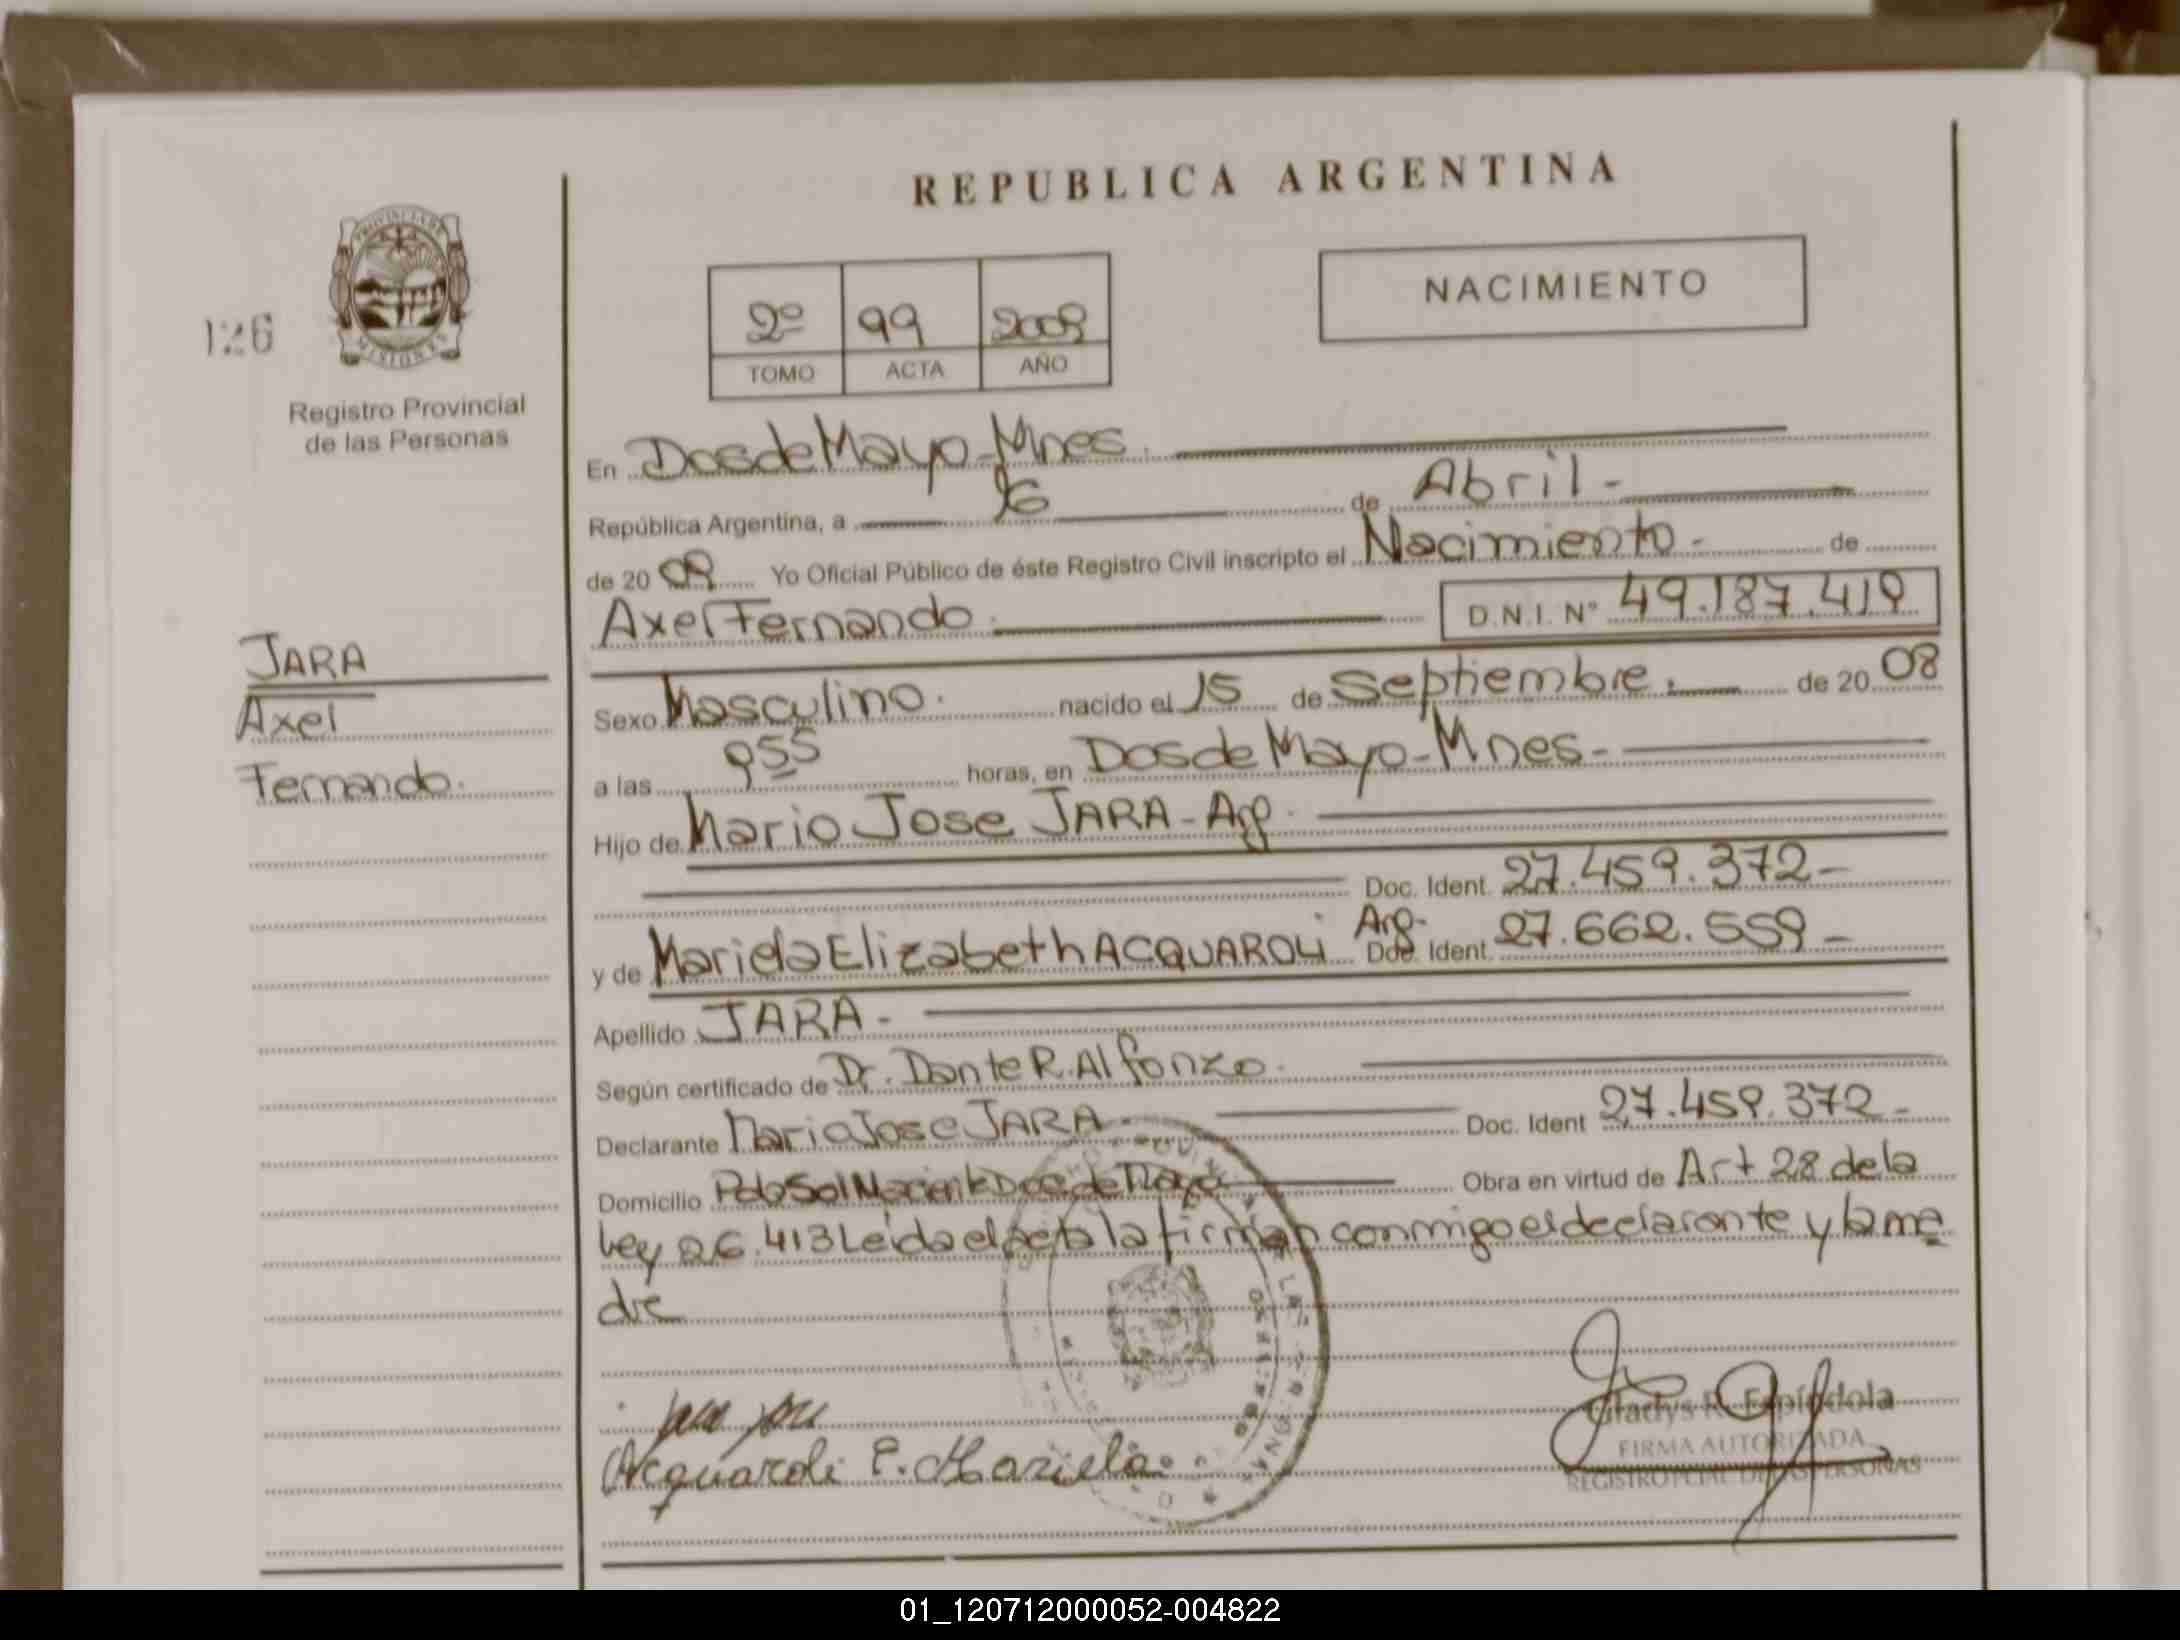 REPUBLICA ARGENTINA
126
PROVINCIA DE
MISIONES
Registro Provincial
de las Personas
2º 99 2009
TOMO ACTA AÑO
NACIMIENTO
En Dos de Mayo - Mnes.
República Argentina, a 16 de Abril -
de 20 09 Yo Oficial Público de éste Registro Civil inscripto el Nacimiento - de
Axel Fernando. D.N.I. Nº 49.187.419
JARA
Axel
Fernando.
Sexo Masculino. nacido el 15 de Septiembre. de 20 08
a las 9 55 horas, en Dos de Mayo - Mnes -
Hijo de Mario Jose JARA - Arg.
Doc. Ident. 27.459.372 -
y de Mariela Elizabeth ACQUAROLI Arg. Doc. Ident. 27.662.559 -
Apellido JARA -
Según certificado de Dr. Dante R. Alfonzo.
Declarante Mario Jose JARA - Doc. Ident 27.459.372 -
Domicilio Dos de Mayo Obra en virtud de Art 28 de la
Ley 26.413 Leida el acta la firman conmigo el declarante y la ma
dre
Acquaroli E. Mariela
Gladys R. Espíndola
FIRMA AUTORIZADA
REGISTRO PCIAL DE LAS PERSONAS
01_120712000052-004822